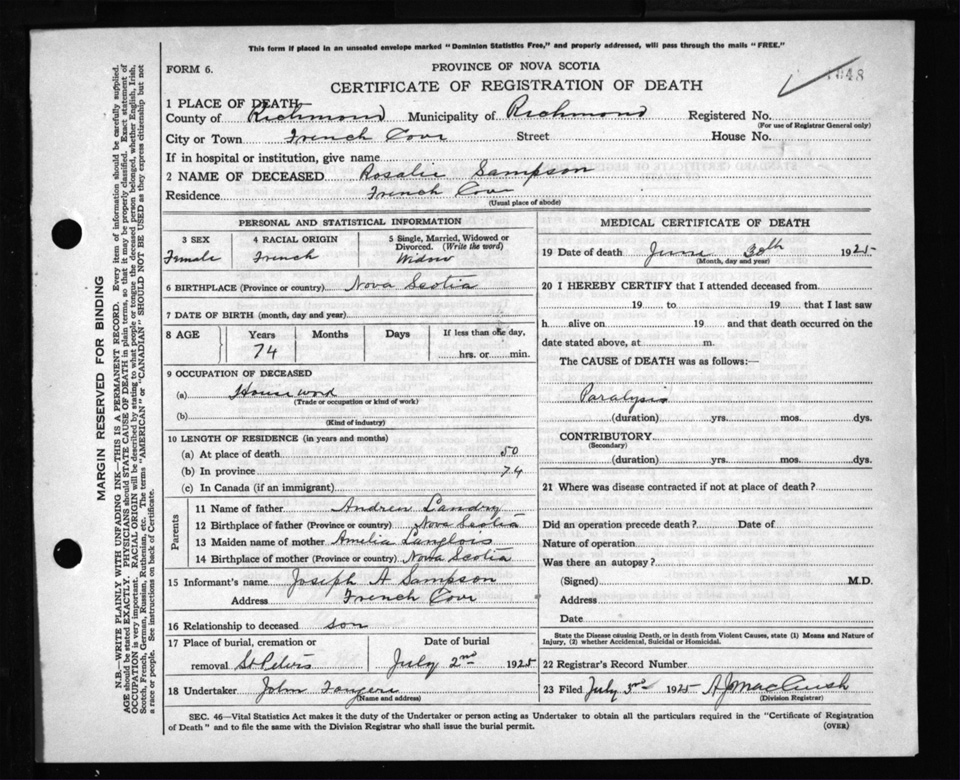 This form if placed in an unsealed envelope marked "Dominion Statistics Free," and properly addressed, will pass through the mails "FREE."
FORM 6.
PROVINCE OF NOVA SCOTIA
CERTIFICATE OF REGISTRATION OF DEATH
1 PLACE OF DEATH—
County of Richmond Municipality of Richmond Registered No.
(For use of Registrar General only)
City or Town French Cove Street House No.
If in hospital or institution, give name
2 NAME OF DECEASED Rosalie Sampson
Residence French Cove
(Usual place of abode)
PERSONAL AND STATISTICAL INFORMATION
3 SEX 4 RACIAL ORIGIN 5 Single, Married, Widowed or Divorced. (Write the word)
Female French Widow
6 BIRTHPLACE (Province or country) Nova Scotia
7 DATE OF BIRTH (month, day and year)
8 AGE Years Months Days If less than one day,
74 hrs. or min.
9 OCCUPATION OF DECEASED
(a) House work
(Trade or occupation or kind of work)
(b)
(Kind of industry)
10 LENGTH OF RESIDENCE (in years and months)
(a) At place of death 50
(b) In province 74
(c) In Canada (if an immigrant)
Parents
11 Name of father Andrew Landry
12 Birthplace of father (Province or country) Nova Scotia
13 Maiden name of mother Amelia Langlois
14 Birthplace of mother (Province or country) Nova Scotia
15 Informant's name Joseph A Sampson
Address French Cove
16 Relationship to deceased son
17 Place of burial, cremation or Date of burial
removal St Peters July 2nd 1925
18 Undertaker John
(Name and address)
MEDICAL CERTIFICATE OF DEATH
19 Date of death June 30th 1925
(Month, day and year)
20 I HEREBY CERTIFY that I attended deceased from
19 to 19 that I last saw
h alive on 19 and that death occurred on the
date stated above, at m.
The CAUSE of DEATH was as follows:—
Paralysis
(duration) yrs. mos. dys.
CONTRIBUTORY
(Secondary)
(duration) yrs. mos. dys.
21 Where was disease contracted if not at place of death?
Did an operation precede death? Date of
Nature of operation
Was there an autopsy?
(Signed) M.D.
Address
Date
State the Disease causing Death, or in death from Violent Causes, state (1) Means and Nature of
Injury, (2) whether Accidental, Suicidal or Homicidal.
22 Registrar's Record Number
23 Filed July 3rd 1925
(Division Registrar)
SEC. 46—Vital Statistics Act makes it the duty of the Undertaker or person acting as Undertaker to obtain all the particulars required in the "Certificate of Registration
of Death" and to file the same with the Division Registrar who shall issue the burial permit. (OVER)
MARGIN RESERVED FOR BINDING
N.B.—WRITE PLAINLY WITH UNFADING INK—THIS IS A PERMANENT RECORD. Every item of information should be carefully supplied.
AGE should be stated EXACTLY. PHYSICIANS should STATE CAUSE OF DEATH in plain terms, so that it may be properly classified. Exact statement of
OCCUPATION is very important. RACIAL ORIGIN will be described by stating to what people or tongue the deceased person belonged, whether English, Irish,
Scotch, French, German, Russian, Ruthenian, etc. The terms "AMERICAN" or "CANADIAN" SHOULD NOT BE USED as they express citizenship but not
a race or people. See instructions on back of Certificate.